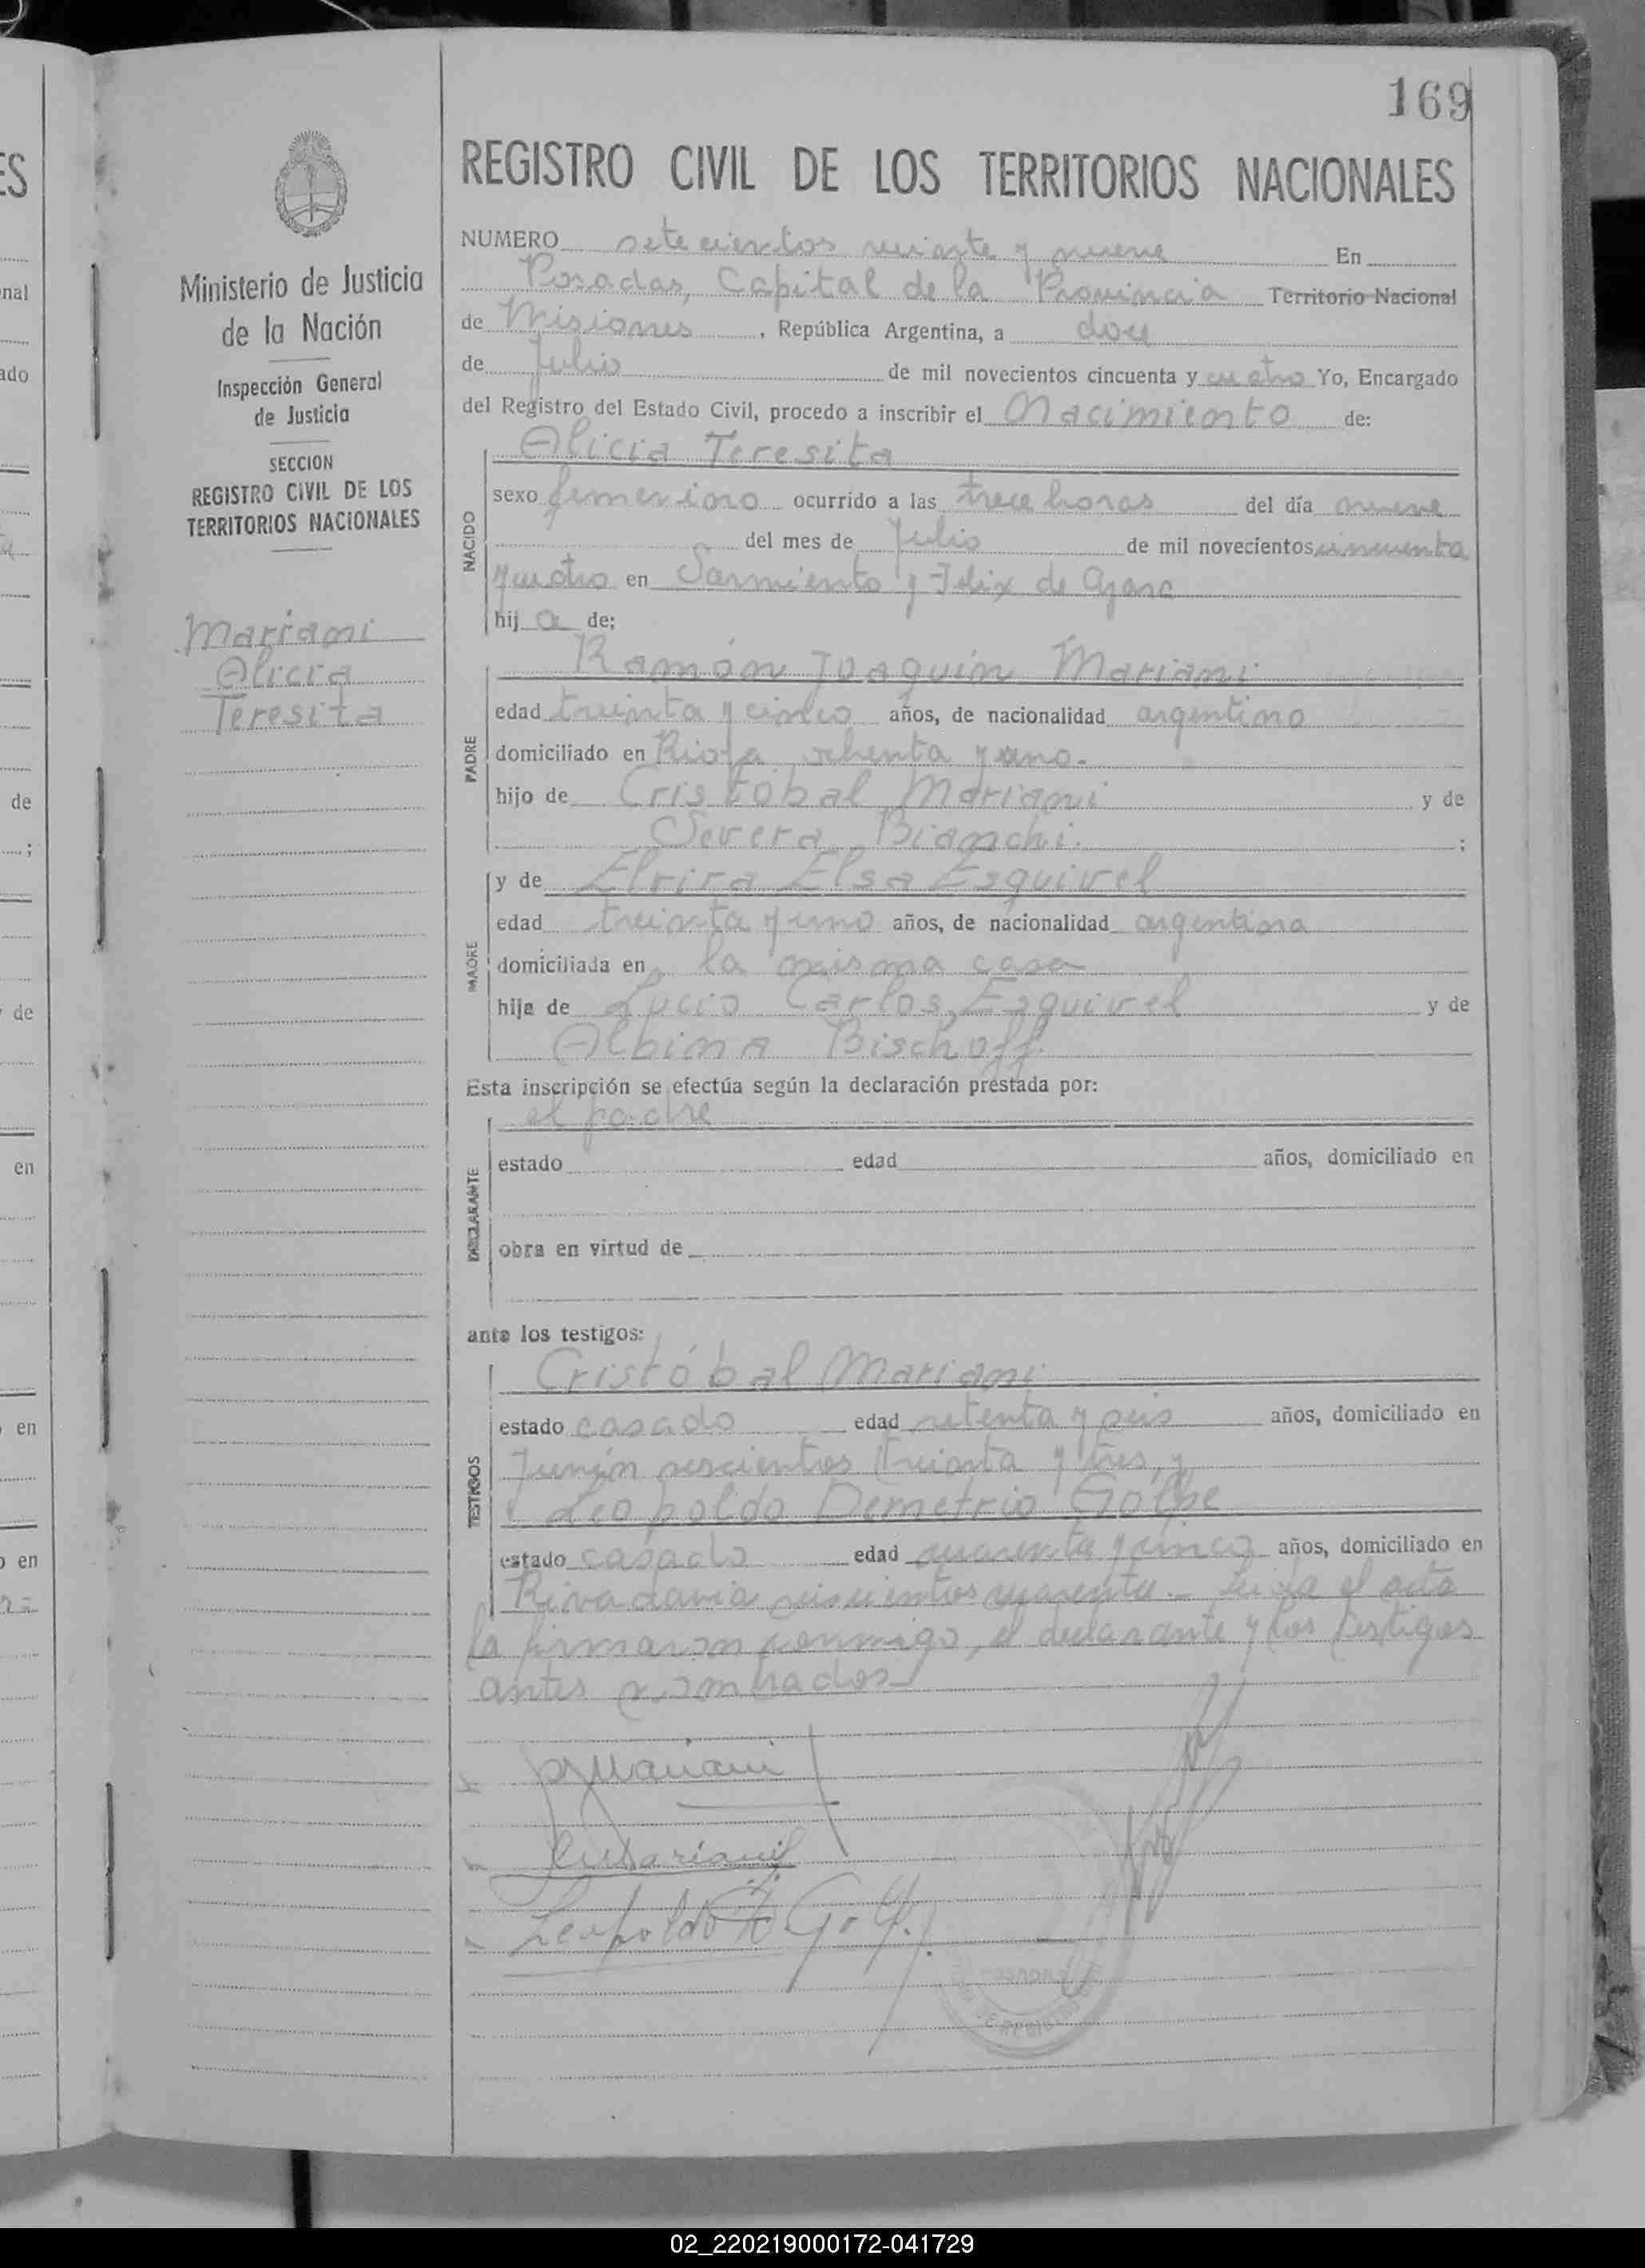 169
REGISTRO CIVIL DE LOS TERRITORIOS NACIONALES
Ministerio de Justicia
de la Nación
Inspección General
de Justicia
SECCION
REGISTRO CIVIL DE LOS
TERRITORIOS NACIONALES
Mariani
Alicia
Teresita
NUMERO setecientos veinte y nueve En
Posadas, Capital de la Provincia Territorio Nacional
de Misiones, República Argentina, a doce
de Julio de mil novecientos cincuenta y cuatro Yo, Encargado
del Registro del Estado Civil, procedo a inscribir el Nacimiento de:
NACIDO
Alicia Teresita
sexo femenino ocurrido a las trece horas del día nueve
del mes de Julio de mil novecientos cincuenta
y cuatro en Sarmiento y Felix de Azara
hij a de:
PADRE
Ramón Joaquín Mariani
edad treinta y cinco años, de nacionalidad argentino
domiciliado en Rioja ochenta y uno.
hijo de Cristóbal Mariani y de
Severa Bianchi. ;
MADRE
y de Elvira Elsa Esquivel
edad treinta y uno años, de nacionalidad argentina
domiciliada en la misma casa
hija de Lucio Carlos Esquivel y de
Albina Bischoff.
Esta inscripción se efectúa según la declaración prestada por:
DECLARANTE
el padre
estado edad años, domiciliado en
obra en virtud de
ante los testigos:
TESTIGOS
Cristóbal Mariani
estado casado edad setenta y seis años, domiciliado en
Junín seiscientos treinta y tres, y
Leopoldo Demetrio Golpe
estado casado edad cuarenta y cinco años, domiciliado en
Rivadavia seiscientos cuarenta.- Leída el acta
la firmaron conmigo, el declarante y los testigos
antes nombrados
Mariani
Mariani
Leopoldo
nal
ado
de
;
de
en
en
en
02_220219000172-041729